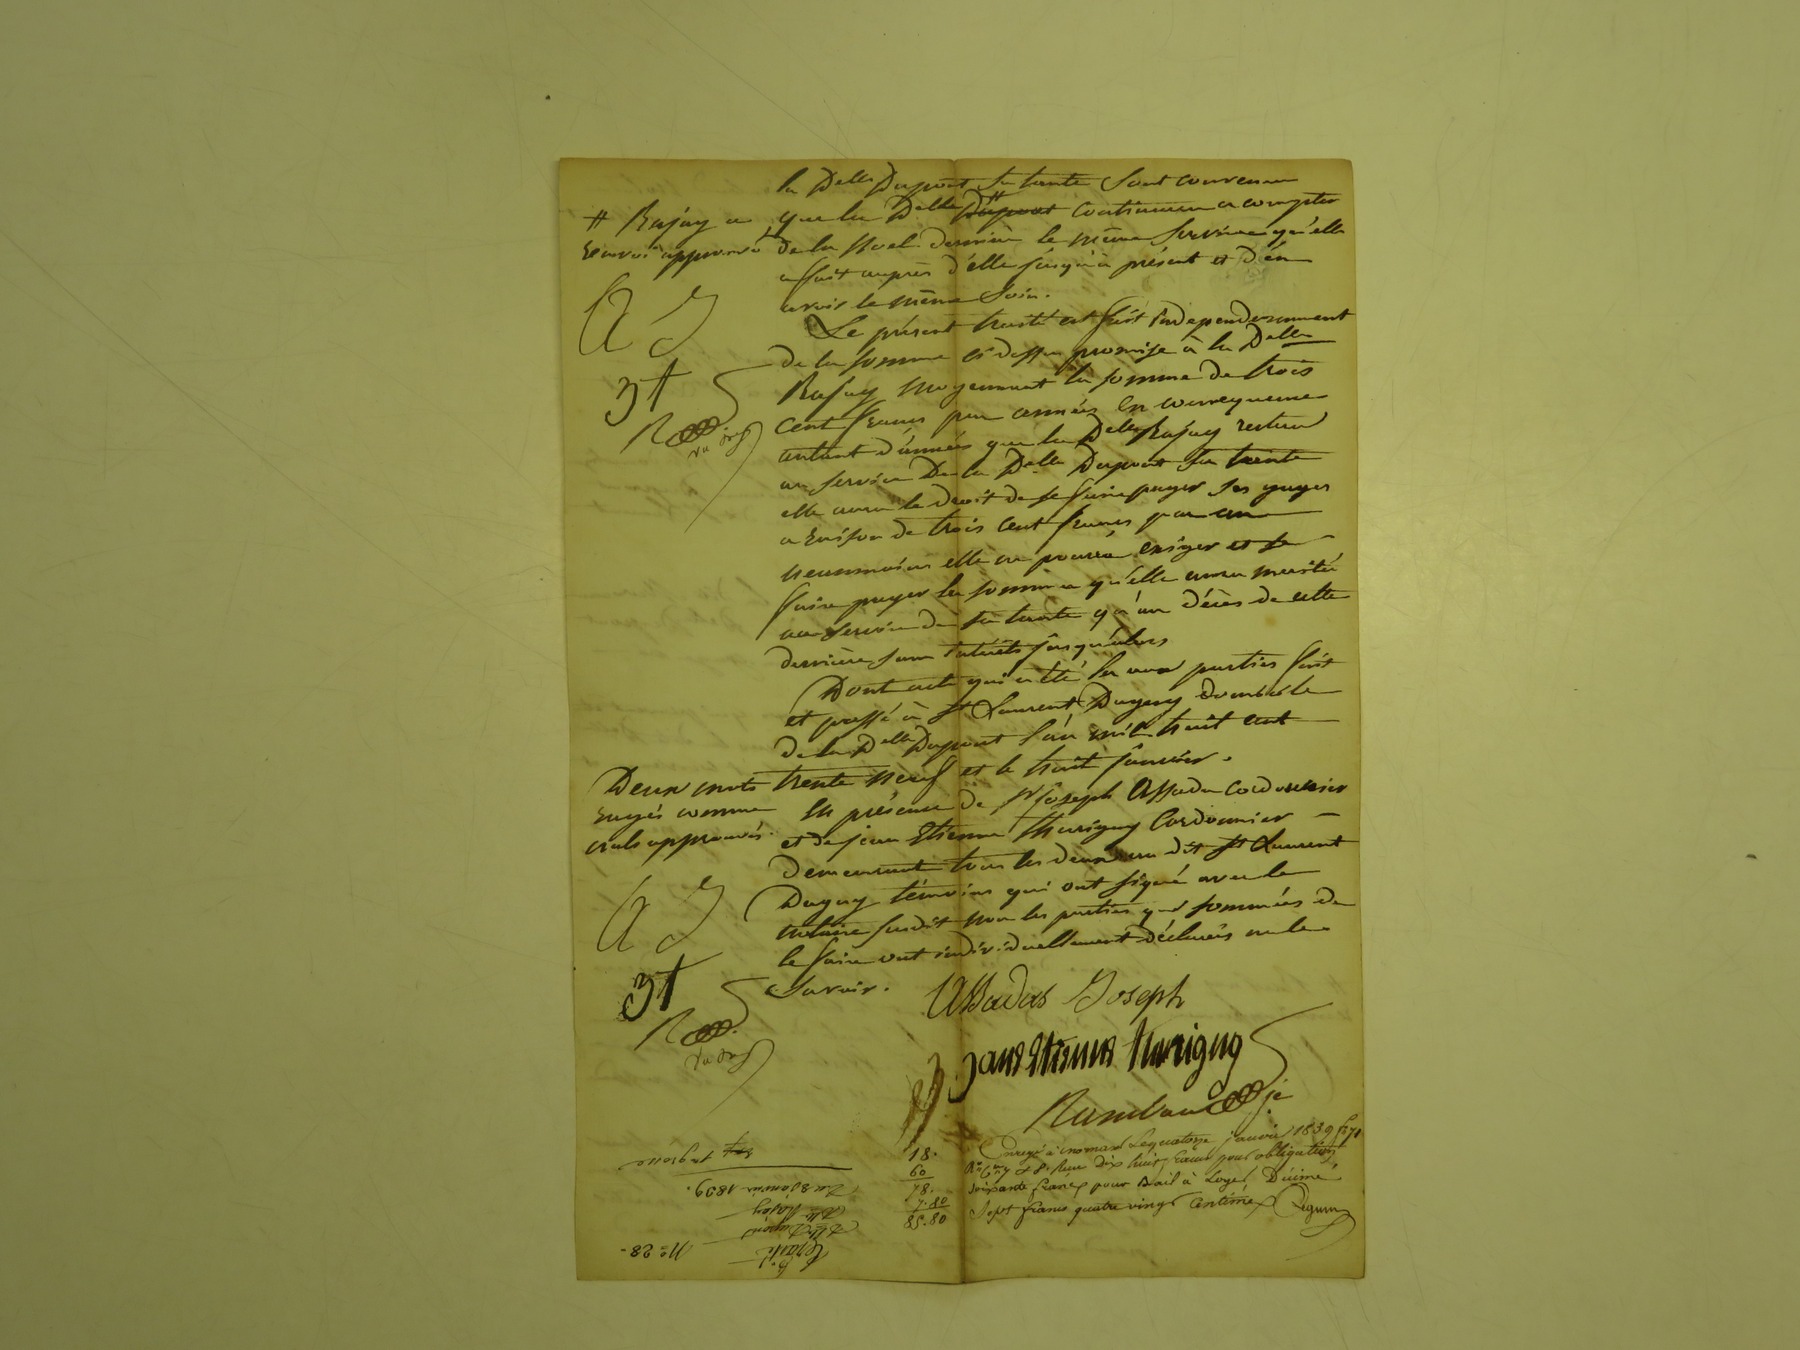 la Delle Dupont sa tante sont convenue
que la Delle Dupont continuera a compter
# Rajay a
renvoi approuvé
de la Noel dernière le même service qu'elle
a fait auprès d'elle jusqu'à présent et d'en
avoir le même soin.
Le présent traité est fait indépendamment
de la somme ci dessus promise à la Delle
Rajay moyennant la somme de trois
cent francs par années en conséquence
autant d'années que la Delle Rajay restera
au service de la Delle Dupont sa tante
elle aura le droit de se faire payer ses gages
a raison de trois cent francs par an
néanmoins elle ne pourra exiger et se
faire payer la somme qu'elle aura mérité
au service de sa tante qu'au décès de cette
dernière sans intérêts jusqu'alors
Dont acte qui a été lu aux parties fait
et passé à St Laurent Dugay domicile
de la Delle Dupont l'an mil huit cent
trente neuf et le huit janvier.
Deux mots
rayés comme
nuls approuvés.
En présence de Sr Joseph Assada Cordonnier
et de jean Etienne Thurigny Cordonnier
demeurant tous les deux au dit St Laurent
Dugay témoins qui ont signé avec le
notaire susdit non les parties qui sommées de
le faire ont individuellement déclarés ne le
savoir.
A J
3t
Assadas Joseph
jans Etienne turigny
Enregé à le quatorze janvier 1839 f° 71
Reçu dix huit francs pour obligation
soixante francs pour Bail à Loyer, Décime
Sept francs quatre vingt centimes
18.
60
78.
7.80
85.80
N° 28.
Traité
Delle Dupont
Delle Rajay
Du 8 Janvier 1839.